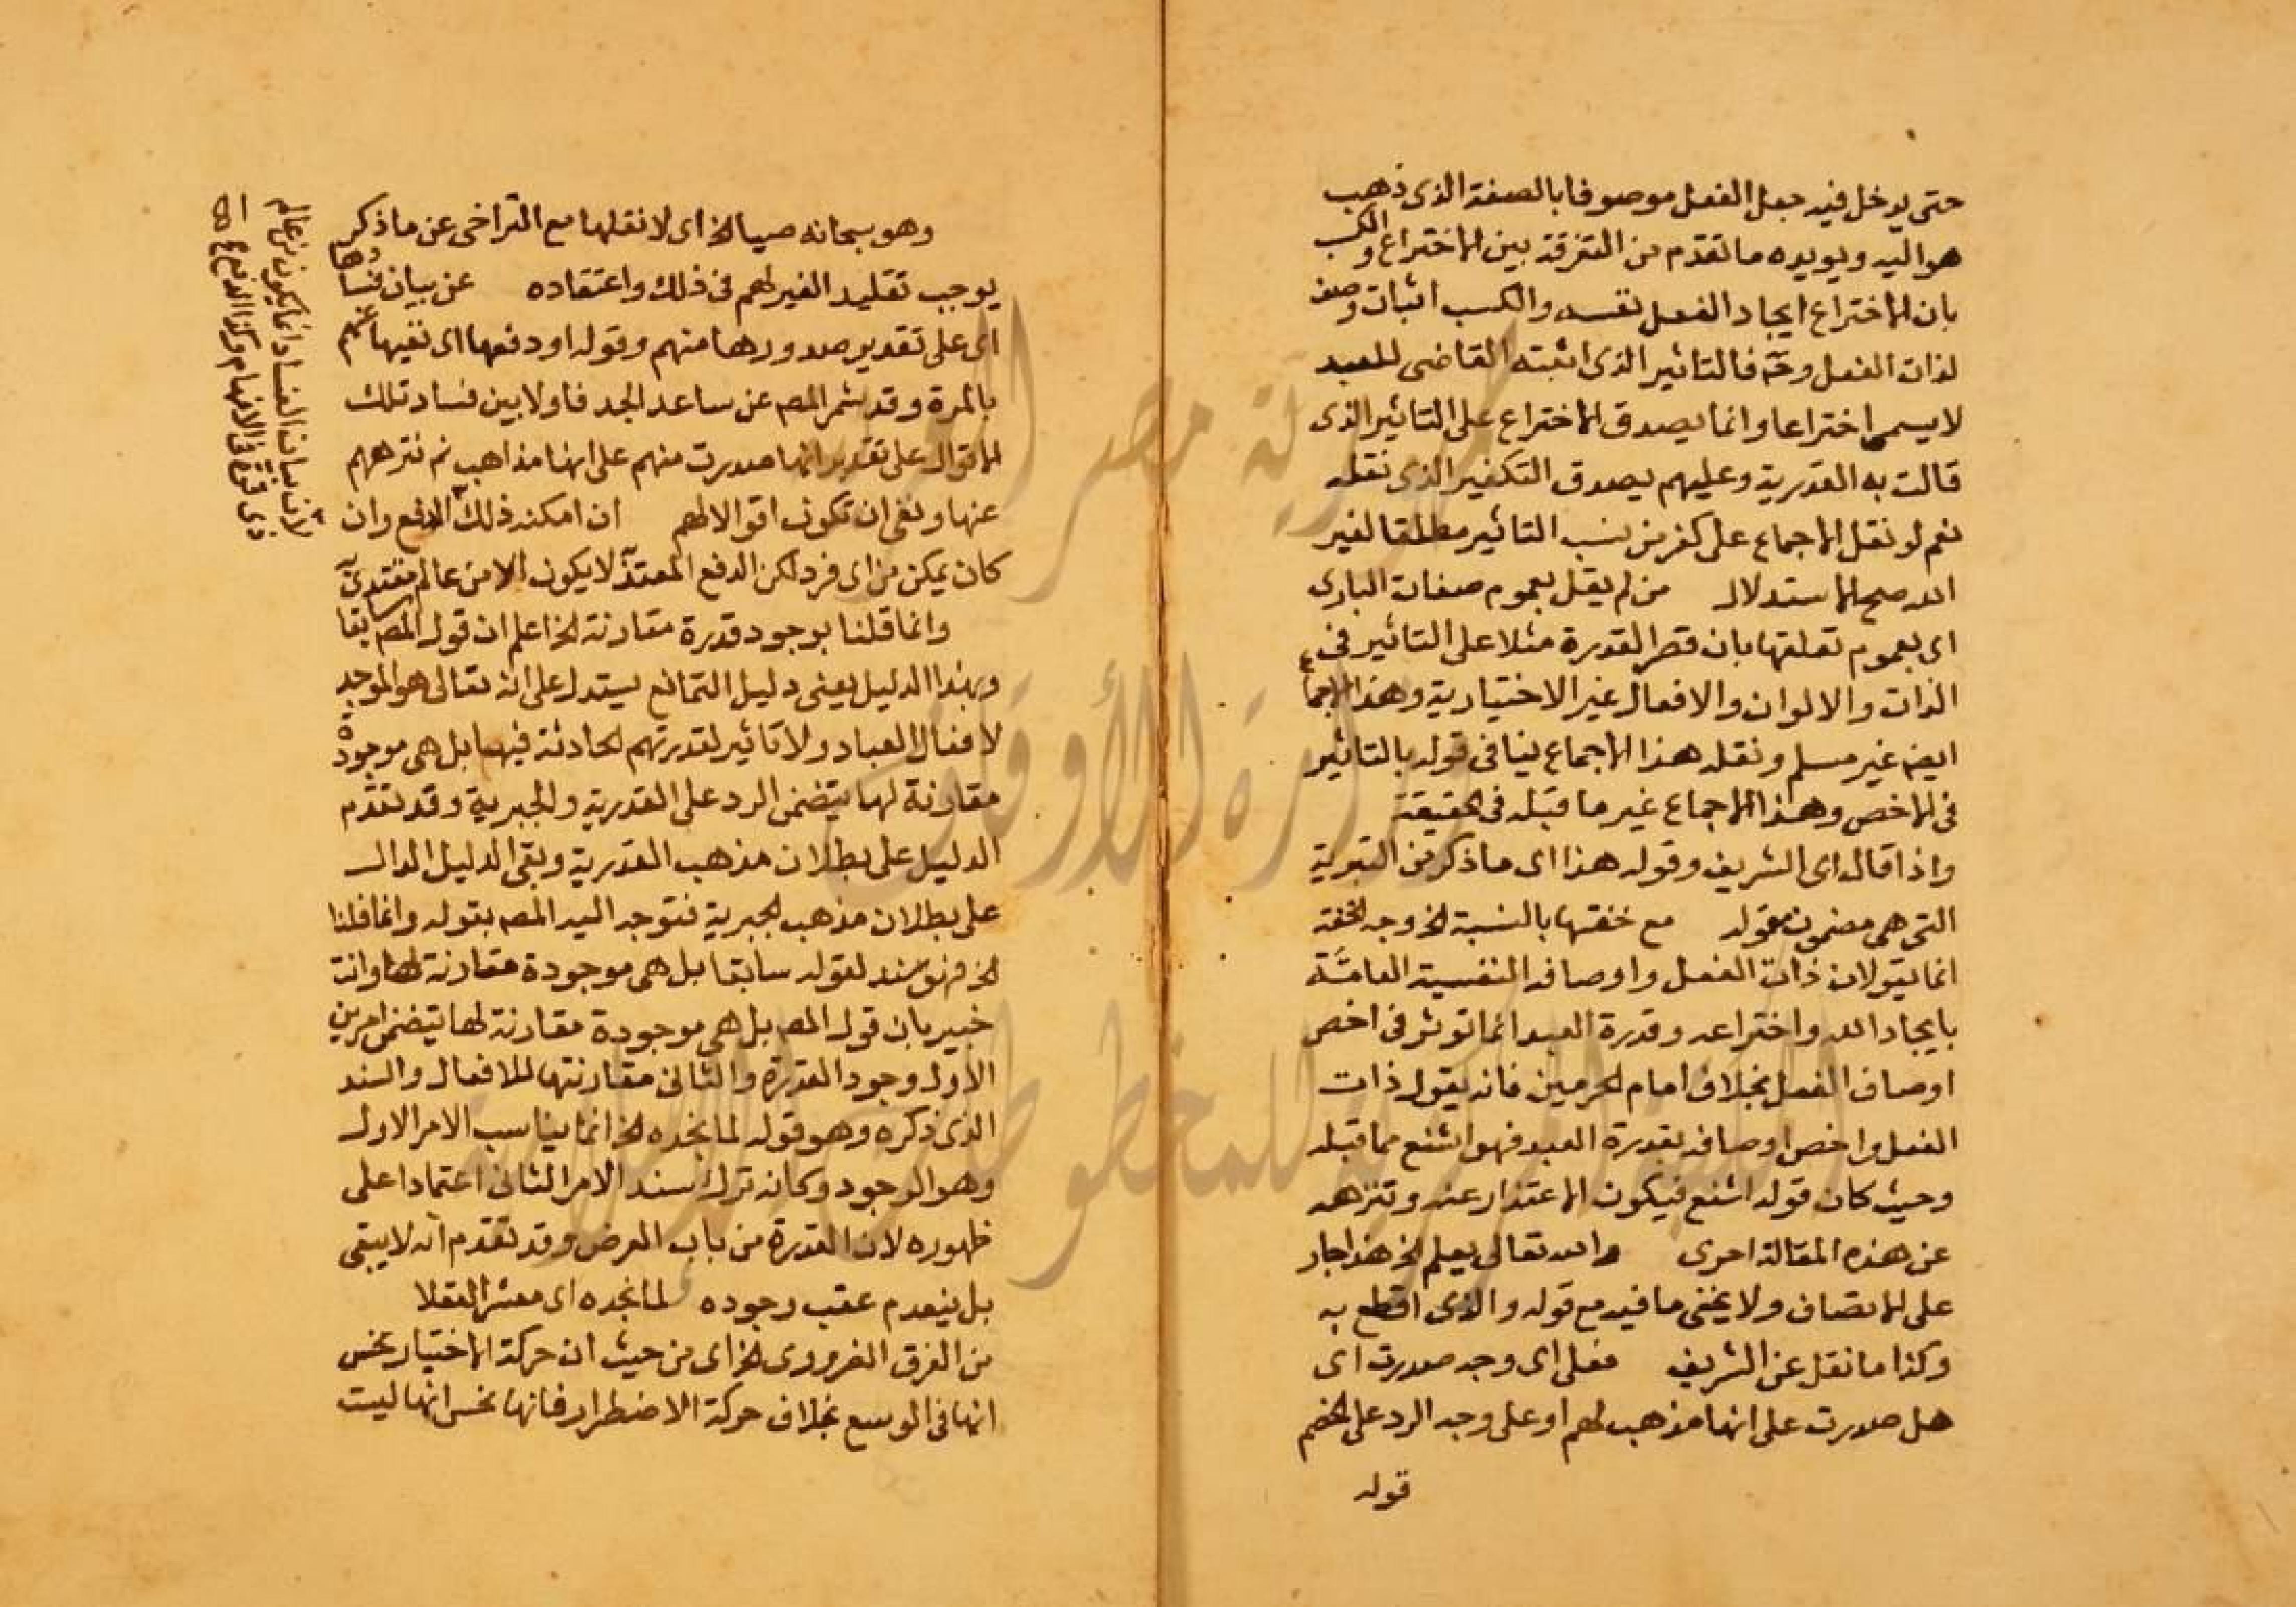 حتى يدخل فيه جعل الفعل موصوفا بالصفة الذى ذهب
هو اليه ويويده ما تقدم من التفرقة بين الاختراع والكسب
بان الاختراع ايجاد الفعل نفسه والكسب اثبات وصف
لذات الفعل وح فالتاثير الذى اثبته القاضى للعبد
لا يسمى اختراعا وانما يصدق الاختراع على التاثير الذى
قالت به القدرية وعليهم يصدق التكفير الذى نقله
نعم لو نقل الاجماع على كفر من نسب التاثير مطلقا لغير
الله صح الاستدلال من لم يقل بعموم صفات البارى
اى بعموم تعلقها بان قصر القدرة مثلا على التاثير فى
الذات والالوان والافعال غير الاختيارية وهذا الاجماع
ايضه غير مسلم ونقله هذا الاجماع ينافى قوله بالتاثير
فى الاخص وهذا الاجماع غير ما قبله فى الحقيقة
واذا قال اى الشريف وقوله هذا اى ما ذكر من التبرية
التى هى مضمون مقوله مع خفتها بالنسبة الخ وجه الخفة
انما يقولان ذات الفعل واوصافه النفسية العامّة
بايجاد الله واختراعه وقدرة العبد انما توثر فى اخص
اوصاف الفعل بخلاف امام الحرمين فانه يقول ذات
الفعل واخص اوصافه بقدرة العبد فهو اشنع مما قبله
وحيث كان قوله اشنع فيكون الاعتذار عنه وتنزهه
عن هذه المقالة احرى والله تعالى يعلم الخ هذا جار
على الانصاف ولا يخفى ما فيه مع قوله والذى اقطع به
وكذا ما نقل عن الشريف فعلى اى وجه صدرت اى
هل صدرت على انها مذهب لهم او على وجه الرد على الخصم
قوله
وهو سبحانه حسيبا الخ اى لا نقلها مع التراخى عن ما ذكر
يوجب تقليد الغير لهم فى ذلك واعتقاده عن بيان فسادها
اى على تقدير صدورها منهم وقوله او دفعها اى نفيها عنهم
بالمرة وقد شمر المصه عن ساعد الجد فاولا بين فساد تلك
الاقوال على تقدير انها صدرت منهم على انها مذاهب ثم نزههم
عنها ونفى ان تكون اقوالا لهم ان امكنه ذلك الدفع وان
كان يمكن من اى فرد لكن الدفع المعتدّ لا يكون الا من عالم
وانما قلنا بوجود قدرة مقارنة الخ اعلم ان قول المصه سابقا
وبهذا الدليل يعنى دليل التمانع يستدل على انه تعالى هو الموجد
لافعال العباد ولا تاثير لقدرتهم الحادثة فيها بل هى موجودة
مقارنة لها يتضمن الرد على القدرية والجبرية وقد تقدم
الدليل على بطلان مذهب القدرية وبقى الدليل الدال
على بطلان مذهب الجبرية فتوجه اليه المصه بقوله وانما قلنا
الخ فهو سند لقوله سابقا بل هى موجودة مقارنة لها وانت
خبير بان قول المصه بل هى موجودة مقارنة لها يتضمن امرين
الاول وجود القدرة والثانى مقارنتها للافعال والسند
الذى ذكره وهو قوله لما نجده الخ انما يناسب الامر الاول
وهو الوجود وكانه ترك سند الامر الثانى اعتمادا على
ظهوره لان القدرة من باب العرض وقد تقدم انه لا يبقى
بل ينعدم عقب وجوده لما نجده اى معشر العقلا
من الفرق الضرورى الخ اى من حيث ان حركة الاختيار نحس
انها فى الوسع بخلاف حركة الاضطرار فانها نحس انها ليست
لان بيان الفساد انما يكون من عالم